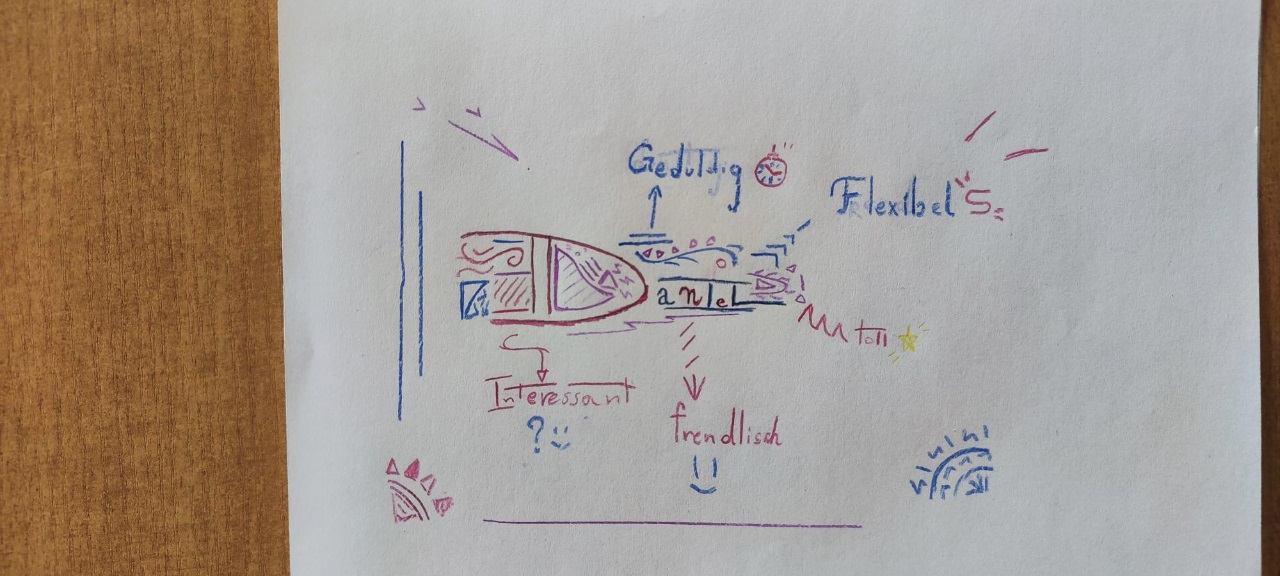 Geduldig
Flexibel
aniel
toll
Interessant
?
frendlisch